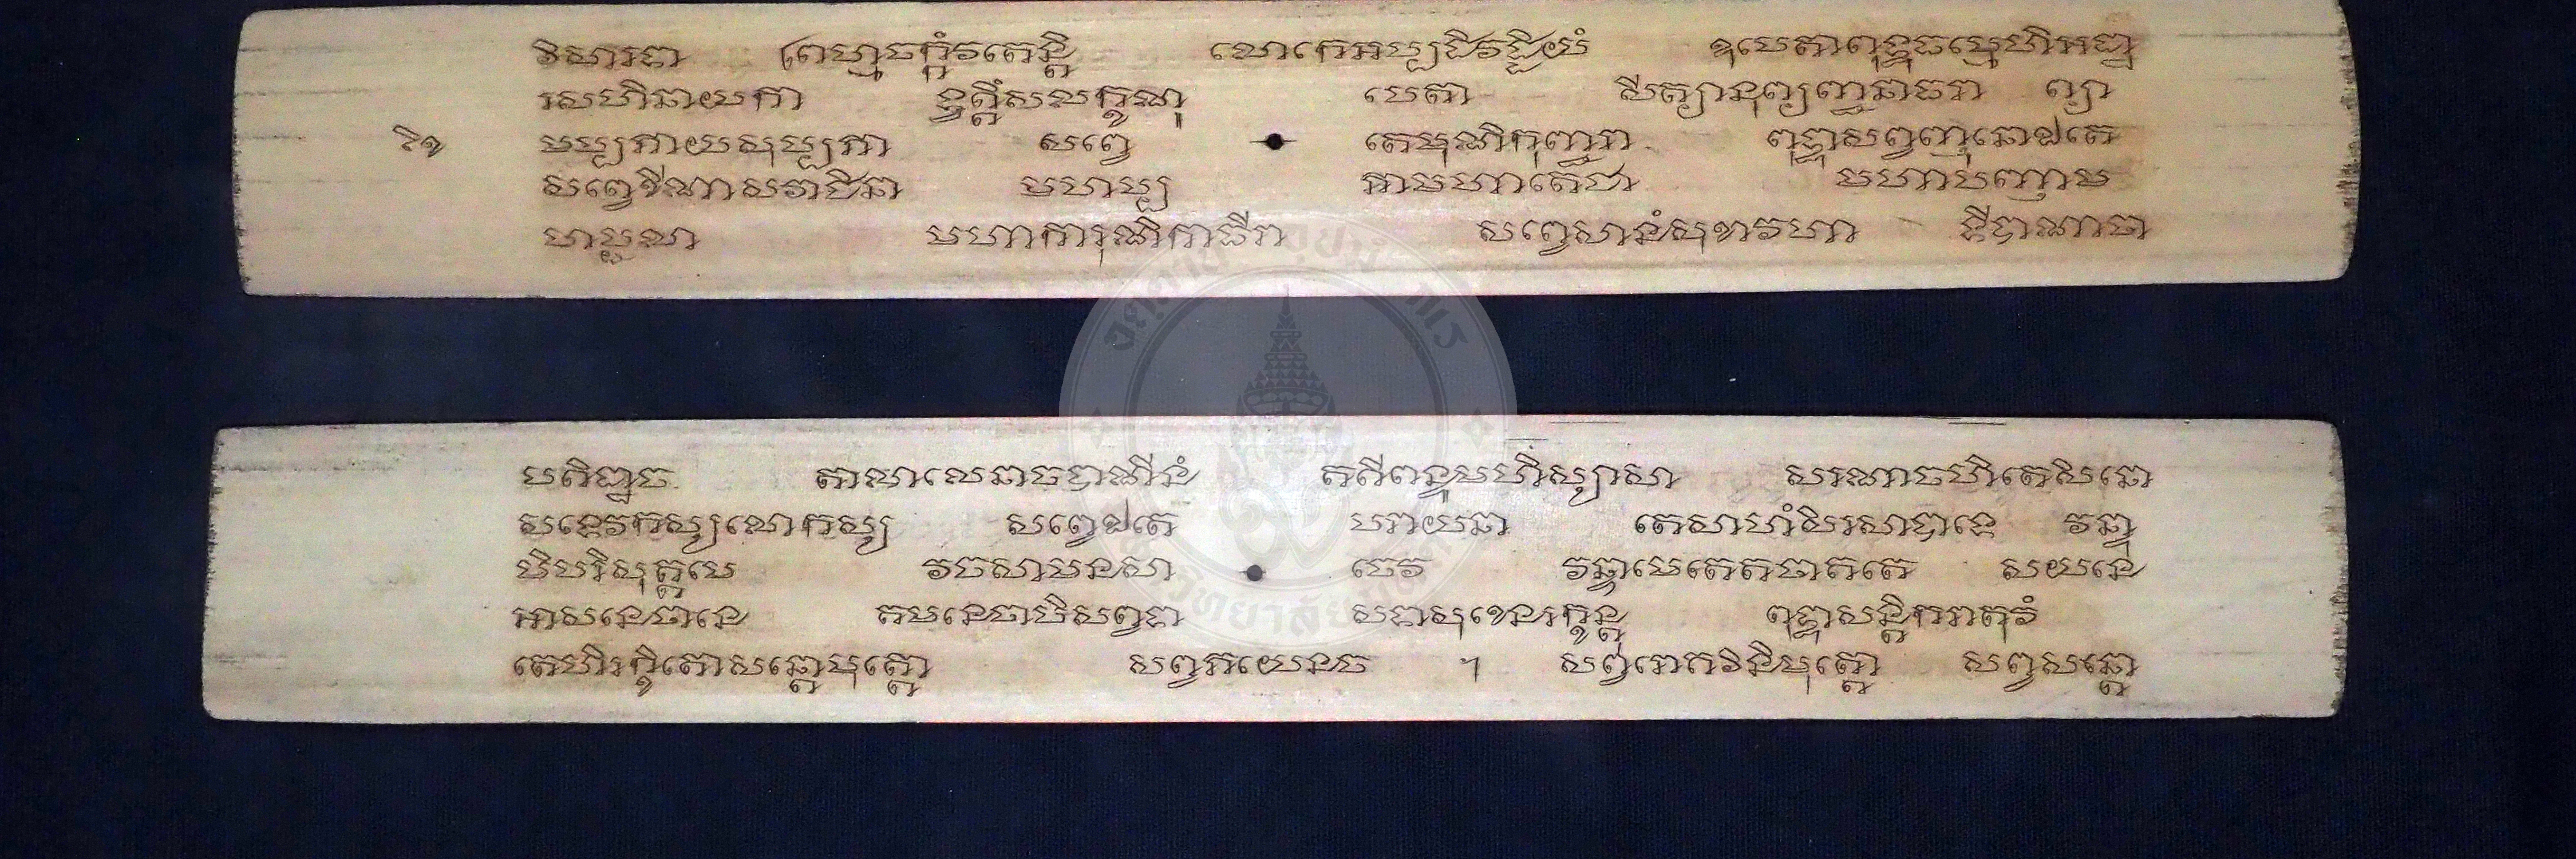 វិសារទា ព្រហ្មចក្កំវតេន្តិ លោកេអប្បដិវដ្ដិយំ ឧបេតាពុទ្ធធម្មេហិអដ្ឋា
រសហិនាយកា ទ្វត្តឹសលក្ខណុ បេតា សីត្យានុព្យញ្ជនាធរា ព្យា
មប្បភាយសុប្បភា សព្វេ តេមុណិកុញ្ជរា ពុទ្ធាសព្វញ្ញុនោឯតេ
សព្វេខីណាសវាជិនា មហប្ប ភាមហាតេជា មហាបញ្ញាម
ហប្ពលា មហាការុណិកាធីរា សព្វេសានំសុខាវហា ទីបាណាថា
បតិដ្ឋាច តាណាលេណាចបាណីនំ គតីពន្ធុមហិស្សាសា សរណាចហិតេសិនោ
សទេវកស្សលោកស្ស សព្វេឯតេ បរាយនា តេសាហំសិរសាបាទេ វន្ទា
មិបុរិសុត្តមេ វចសាមនសា ចេវ វន្ទាមេតេតថាគតេ សយនេ
អាសនេឋានេ គមនេចាបិសព្វទា សទាសុខេនរក្ខន្តុ ពុទ្ធាសន្តិករាតុវំ
តេហិរក្ខិតោសន្តោមុត្តោ សព្វភយេនច ។ សព្វរោគវិនិមុត្តោ សព្វសន្តោ